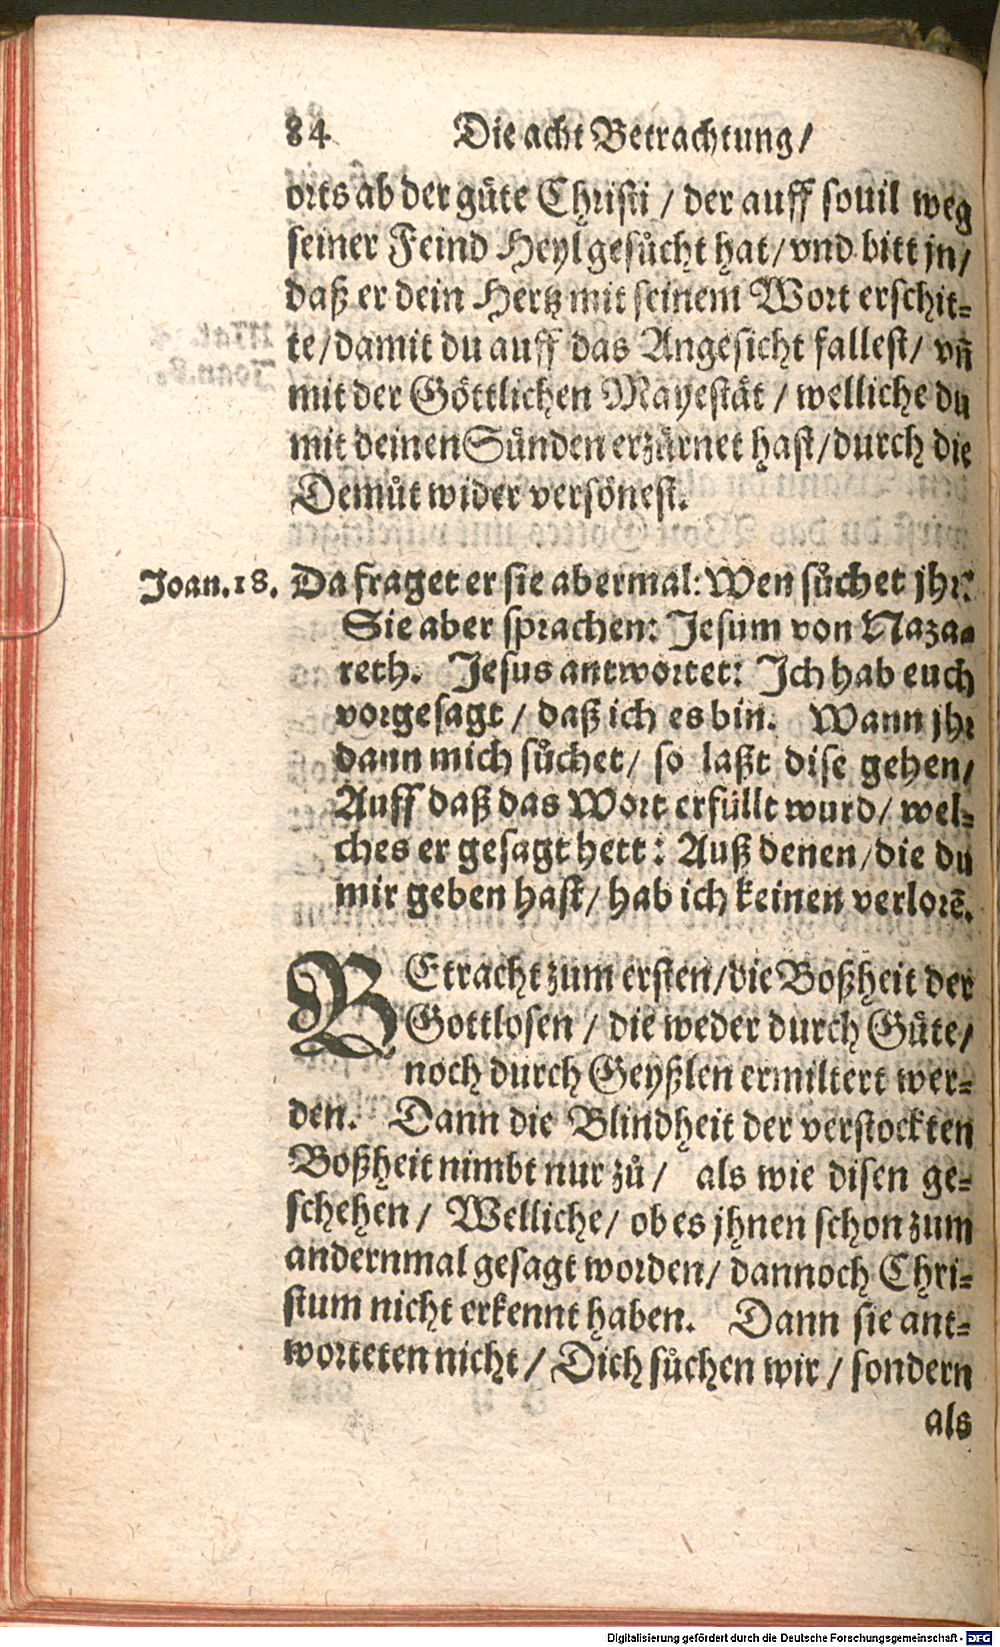 84 Die acht Betrachtung/
orts ab der guͤte Christi / der auff souil weg
seiner Feind Heyl gesuͦcht hat / vnd bitt jn/
daß er dein Hertz mit seinem Wort erschit-
te/damit du auff das Angesicht fallest/ vñ
mit der Goͤttlichen Mayestaͤt / welliche du
mit deinen Suͤnden erzuͤrnet hast/durch die
Demuͦt wider versoͤnest.
Joan.18. Da fraget er sie abermal: Wen suͦchet jhr?
Sie aber sprachen: Jesum von Naza-
reth. Jesus antwortet: Ich hab euch
vorgesagt / daß ich es bin. Wann jhr
dann mich suͦchet/ so laßt dise gehen/
Auff daß das Wort erfüllt wurd/ wel-
ches er gesagt hett: Auß denen/die du
mir geben hast/ hab ich keinen verlorẽ.
BEtracht zum ersten/die Boßheit der
Gottlosen / die weder durch Guͤte/
noch durch Geyßlen ermiltert wer-
den. Dann die Blindheit der verstockten
Boßheit nimbt nur zuͦ/ als wie disen ge-
schehen/ Welliche/ ob es jhnen schon zum
andernmal gesagt worden/ dannoch Chri-
stum nicht erkennt haben. Dann sie ant-
worteten nicht / Dich suͦchen wir / sondern
als
Digitalisierung gefördert durch die Deutsche Forschungsgemeinschaft - DFG